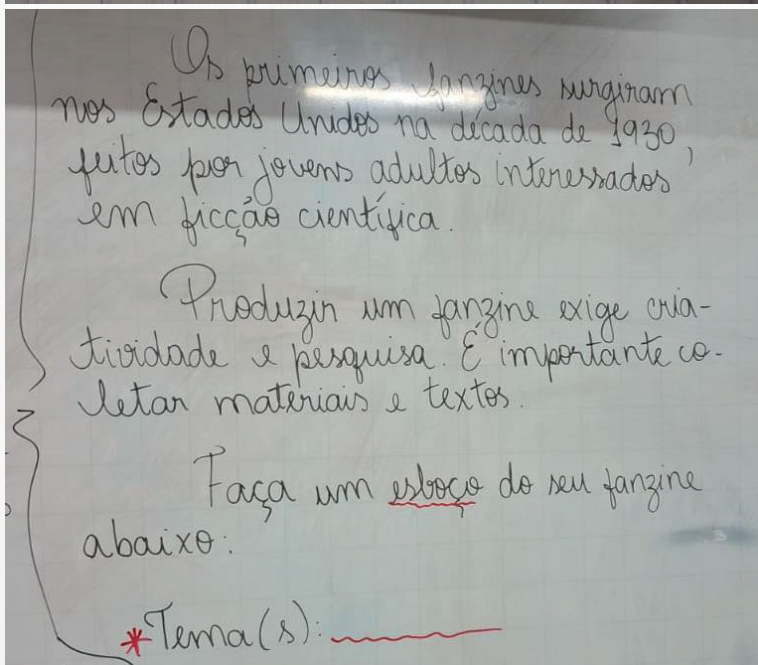 Os primeiros fanzines surgiram
nos Estados Unidos na década de 1930,
feitos por jovens adultos interessados
em ficção científica.
Produzir um fanzine exige cria-
tividade e pesquisa. É importante co-
letar materiais e textos.
Faça um esboço do seu fanzine
abaixo:
*Tema(s): ______